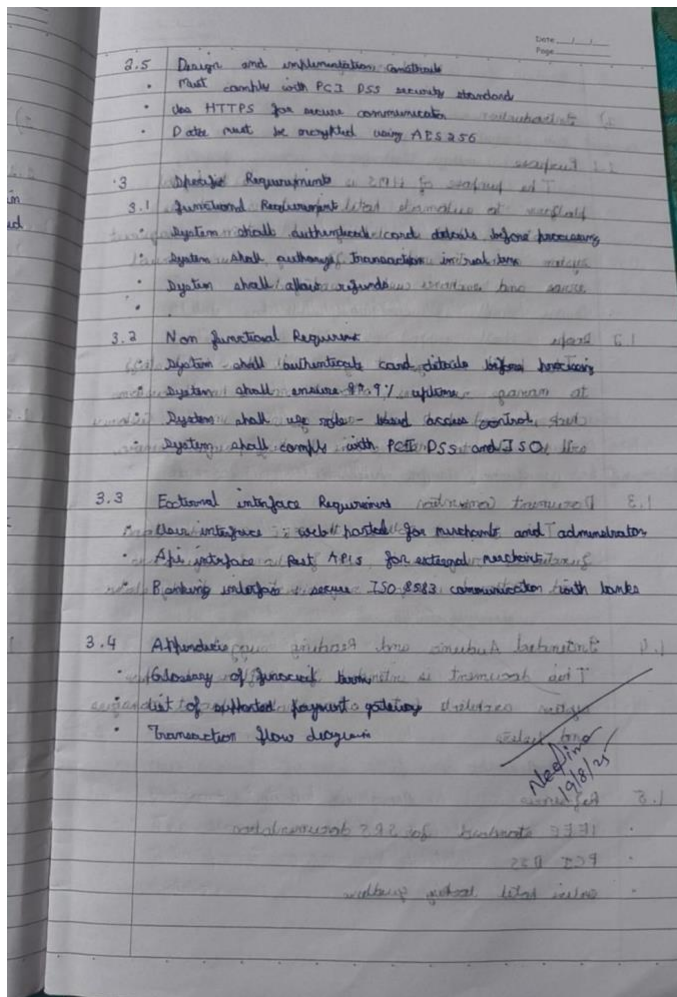 Date __/__/__
Page
2.5 Design and implementation constraits
• Must comply with PCI DSS security standard
• Use HTTPS for secure communication
• Data must be encrypted using AES 256
3 Specific Requirements
3.1 functional Requirement
• System shall authenticate card details before processing
• System shall authorize transaction in real time
• System shall allow refunds
3.2 Non functional Requirement
• System shall authenticate card details before processing
• System shall ensure 99.9% uptime
• System shall use role-based access control
• System shall comply with PCI DSS and ISO
3.3 External interface Requirement
• User interface : web portal for merchants and administrator
• Api interface : Rest APIs for external merchant
• Banking interface : secure ISO 8583 communication with banks
3.4 Appendices
• Glossary of financial term
• List of supported payment gateway
• Transaction flow diagram
19/8/25